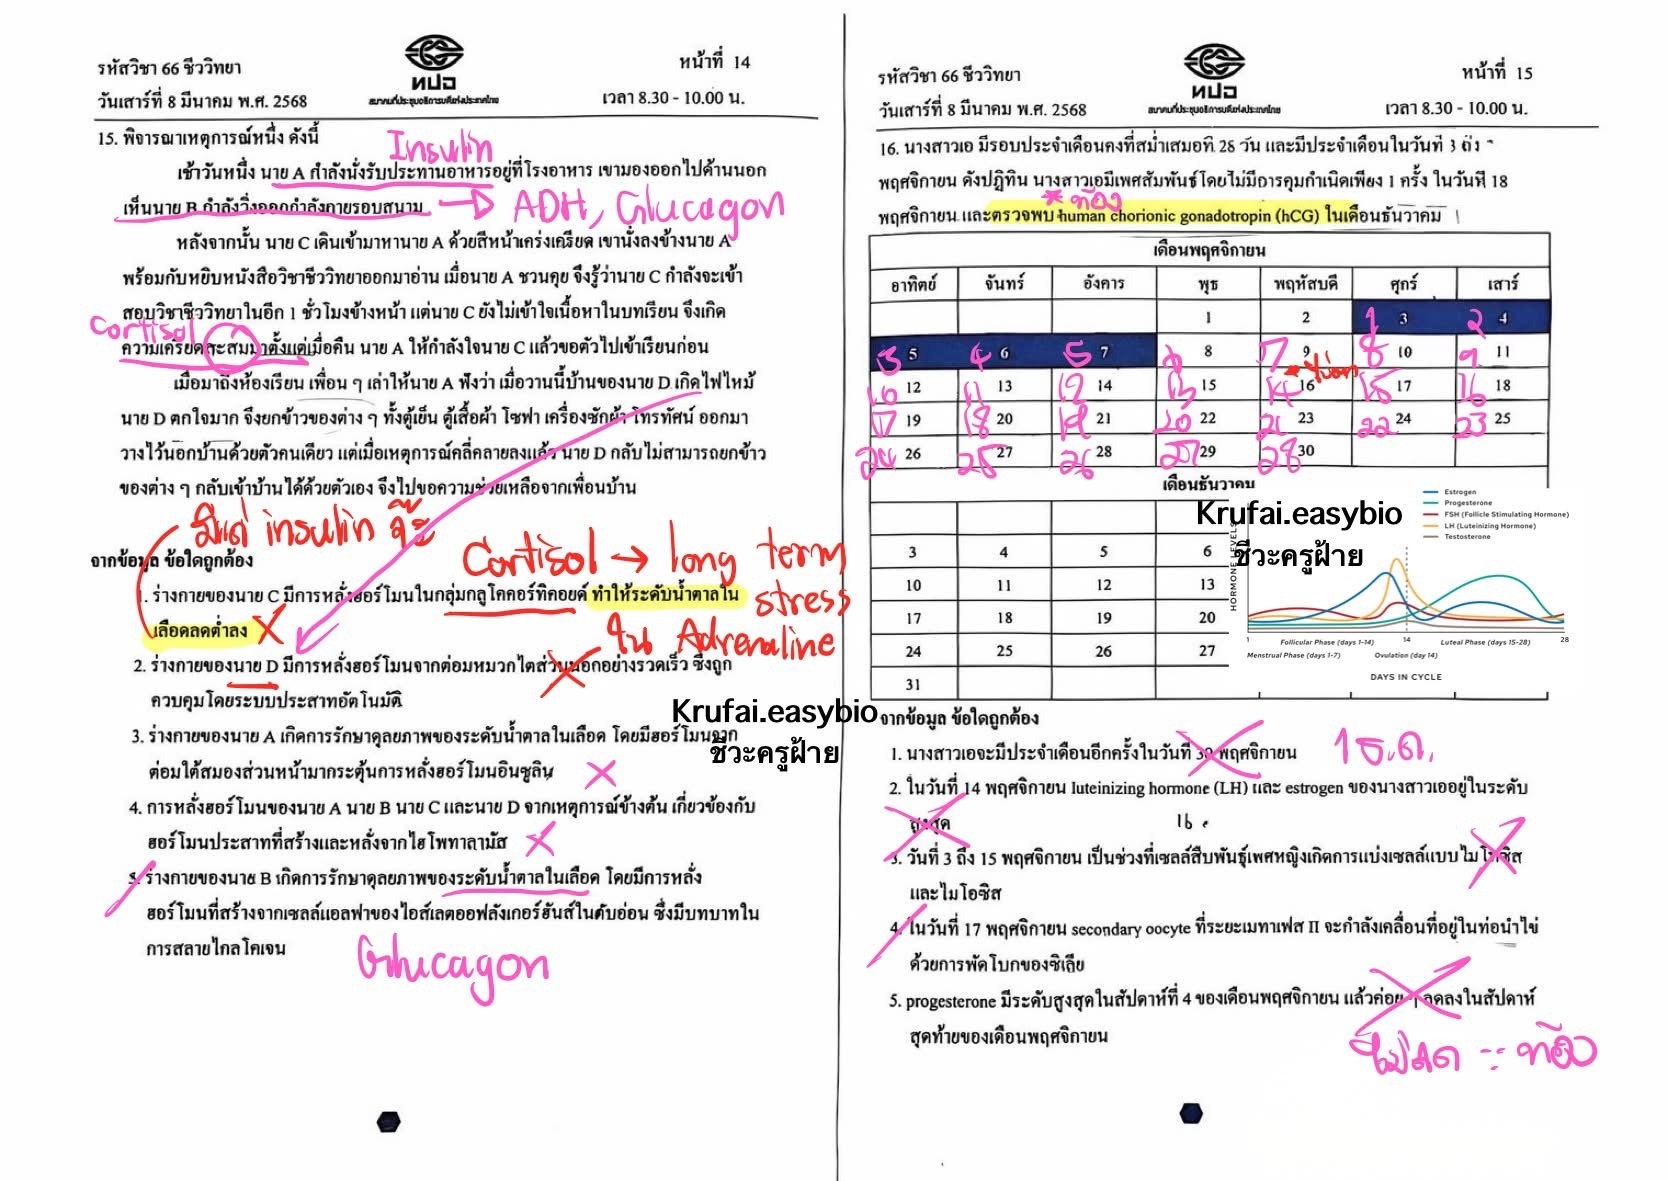 รหัสวิชา 66 ชีววิทยา
ทปอ
สมาคมที่ประชุมอธิการบดีแห่งประเทศไทย
หน้าที่ 14
วันเสาร์ที่ 8 มีนาคม พ.ศ. 2568
เวลา 8.30 - 10.00 น.
15. พิจารณาเหตุการณ์หนึ่ง ดังนี้
Insulin
เช้าวันหนึ่ง นาย A กำลังนั่งรับประทานอาหารอยู่ที่โรงอาหาร เขามองออกไปด้านนอก
เห็นนาย B กำลังวิ่งออกกำลังกายรอบสนาม → ADH, Glucagon
หลังจากนั้น นาย C เดินเข้ามาหานาย A ด้วยสีหน้าเคร่งเครียด เขานั่งลงข้างนาย A
พร้อมกับหยิบหนังสือวิชาชีววิทยาออกมาอ่าน เมื่อนาย A ชวนคุย จึงรู้ว่านาย C กำลังจะเข้า
สอบวิชาชีววิทยาในอีก 1 ชั่วโมงข้างหน้า แต่นาย C ยังไม่เข้าใจเนื้อหาในบทเรียน จึงเกิด
Cortisol
ความเครียดสะสมมาตั้งแต่เมื่อคืน นาย A ให้กำลังใจนาย C แล้วขอตัวไปเข้าเรียนก่อน
เมื่อมาถึงห้องเรียน เพื่อน ๆ เล่าให้นาย A ฟังว่า เมื่อวานนี้บ้านของนาย D เกิดไฟไหม้
นาย D ตกใจมาก จึงยกข้าวของต่าง ๆ ทั้งตู้เย็น ตู้เสื้อผ้า โซฟา เครื่องซักผ้า โทรทัศน์ ออกมา
วางไว้นอกบ้านด้วยตัวคนเดียว แต่เมื่อเหตุการณ์คลี่คลายลงแล้ว นาย D กลับไม่สามารถยกข้าว
ของต่าง ๆ กลับเข้าบ้านได้ด้วยตัวเอง จึงไปขอความช่วยเหลือจากเพื่อนบ้าน
มีแค่ insulin จ๊ะ
จากข้อมูล ข้อใดถูกต้อง
Cortisol → long term
stress
ใน Adrenaline
1. ร่างกายของนาย C มีการหลั่งฮอร์โมนในกลุ่มกลูโคคอร์ทิคอยด์ ทำให้ระดับน้ำตาลใน
เลือดลดต่ำลง
2. ร่างกายของนาย D มีการหลั่งฮอร์โมนจากต่อมหมวกไตส่วนนอกอย่างรวดเร็ว ซึ่งถูก
ควบคุมโดยระบบประสาทอัตโนมัติ
3. ร่างกายของนาย A เกิดการรักษาดุลยภาพของระดับน้ำตาลในเลือด โดยมีฮอร์โมนจาก
ต่อมใต้สมองส่วนหน้ามากระตุ้นการหลั่งฮอร์โมนอินซูลิน
4. การหลั่งฮอร์โมนของนาย A นาย B นาย C และนาย D จากเหตุการณ์ข้างต้น เกี่ยวข้องกับ
ฮอร์โมนประสาทที่สร้างและหลั่งจากไฮโพทาลามัส
5. ร่างกายของนาย B เกิดการรักษาดุลยภาพของระดับน้ำตาลในเลือด โดยมีการหลั่ง
ฮอร์โมนที่สร้างจากเซลล์แอลฟาของไอส์เลตออฟลังเกอร์ฮันส์ในตับอ่อน ซึ่งมีบทบาทใน
การสลายไกลโคเจน
Glucagon
Krufai.easybio
ชีวะครูฝ้าย
รหัสวิชา 66 ชีววิทยา
ทปอ
สมาคมที่ประชุมอธิการบดีแห่งประเทศไทย
หน้าที่ 15
วันเสาร์ที่ 8 มีนาคม พ.ศ. 2568
เวลา 8.30 - 10.00 น.
16. นางสาวเอ มีรอบประจำเดือนคงที่สม่ำเสมอที่ 28 วัน และมีประจำเดือนในวันที่ 3 ถึง
พฤศจิกายน ดังปฏิทิน นางสาวเอมีเพศสัมพันธ์โดยไม่มีการคุมกำเนิดเพียง 1 ครั้ง ในวันที่ 18
* ท้อง
พฤศจิกายน และตรวจพบ human chorionic gonadotropin (hCG) ในเดือนธันวาคม
เดือนพฤศจิกายน
อาทิตย์ จันทร์ อังคาร พุธ พฤหัสบดี ศุกร์ เสาร์
1 2 1 3 2 4
3 5 4 6 5 7 8 7 9 8 10 9 11
10 12 11 13 12 14 13 15 14 16 ไข่ตก 15 17 16 18
17 19 18 20 19 21 20 22 21 23 22 24 23 25
24 26 25 27 26 28 27 29 28 30
เดือนธันวาคม
3 4 5 6
10 11 12 13
17 18 19 20
24 25 26 27
31
Krufai.easybio
ชีวะครูฝ้าย
Estrogen
Progesterone
FSH (Follicle Stimulating Hormone)
LH (Luteinizing Hormone)
Testosterone
HORMONE LEVELS
1 14 28
Follicular Phase (days 1-14) Luteal Phase (days 15-28)
Menstrual Phase (days 1-7) Ovulation (day 14)
DAYS IN CYCLE
จากข้อมูล ข้อใดถูกต้อง
1. นางสาวเอจะมีประจำเดือนอีกครั้งในวันที่ 30 พฤศจิกายน 1 ธ.ค.
2. ในวันที่ 14 พฤศจิกายน luteinizing hormone (LH) และ estrogen ของนางสาวเออยู่ในระดับ
สูงสุด 16
3. วันที่ 3 ถึง 15 พฤศจิกายน เป็นช่วงที่เซลล์สืบพันธุ์เพศหญิงเกิดการแบ่งเซลล์แบบไมโทซิส
และไมโอซิส
4. ในวันที่ 17 พฤศจิกายน secondary oocyte ที่ระยะเมทาเฟส II จะกำลังเคลื่อนที่อยู่ในท่อนำไข่
ด้วยการพัดโบกของซิเลีย
5. progesterone มีระดับสูงสุดในสัปดาห์ที่ 4 ของเดือนพฤศจิกายน แล้วค่อย ๆ ลดลงในสัปดาห์
สุดท้ายของเดือนพฤศจิกายน
ไม่ลด ∵ ท้อง